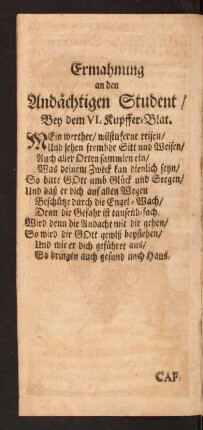 Ermahnung
an den
Andächtigen Student /
Bey dem VI. Kupffer-Blat.
MEin werther / wilstu ferne reisen /
Und sehen frembde Sitt und Weisen /
Auch aller Orten sammlen ein /
Was deinem Zweck kan dienlich seyn /
So bitte GOtt umb Glück und Seegen /
Und daß er dich auf allen Wegen
Beschütze durch die Engel-Wach /
Denn die Gefahr ist tausend-fach.
Wird denn die Andacht mit dir gehen /
So wird dir GOtt gewiß beystehen /
Und wie er dich geführet aus /
So bringen auch gesund nach Hauß.
CAP.